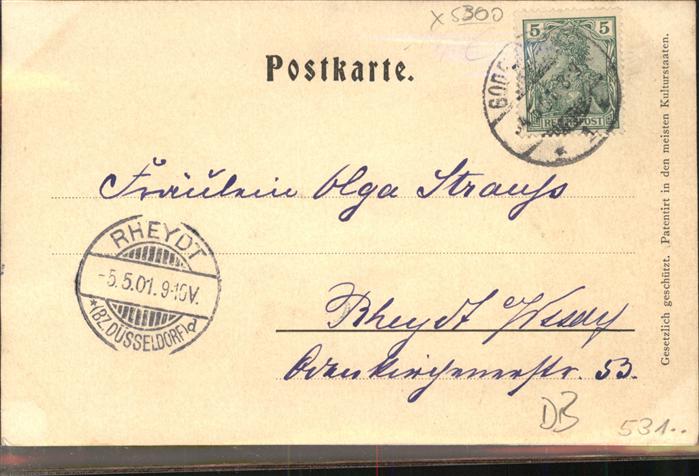 x 5300
5 5
REICHSPOST
Postkarte.
GODE
Fräulein Olga Strauss
RHEYDT
-5.5.01.9-10V.
*(BZ.DÜSSELDORF)
Rheydt
Odenkirchenerstr. 53.
DB
531..
Gesetzlich geschützt. Patentirt in den meisten Kulturstaaten.